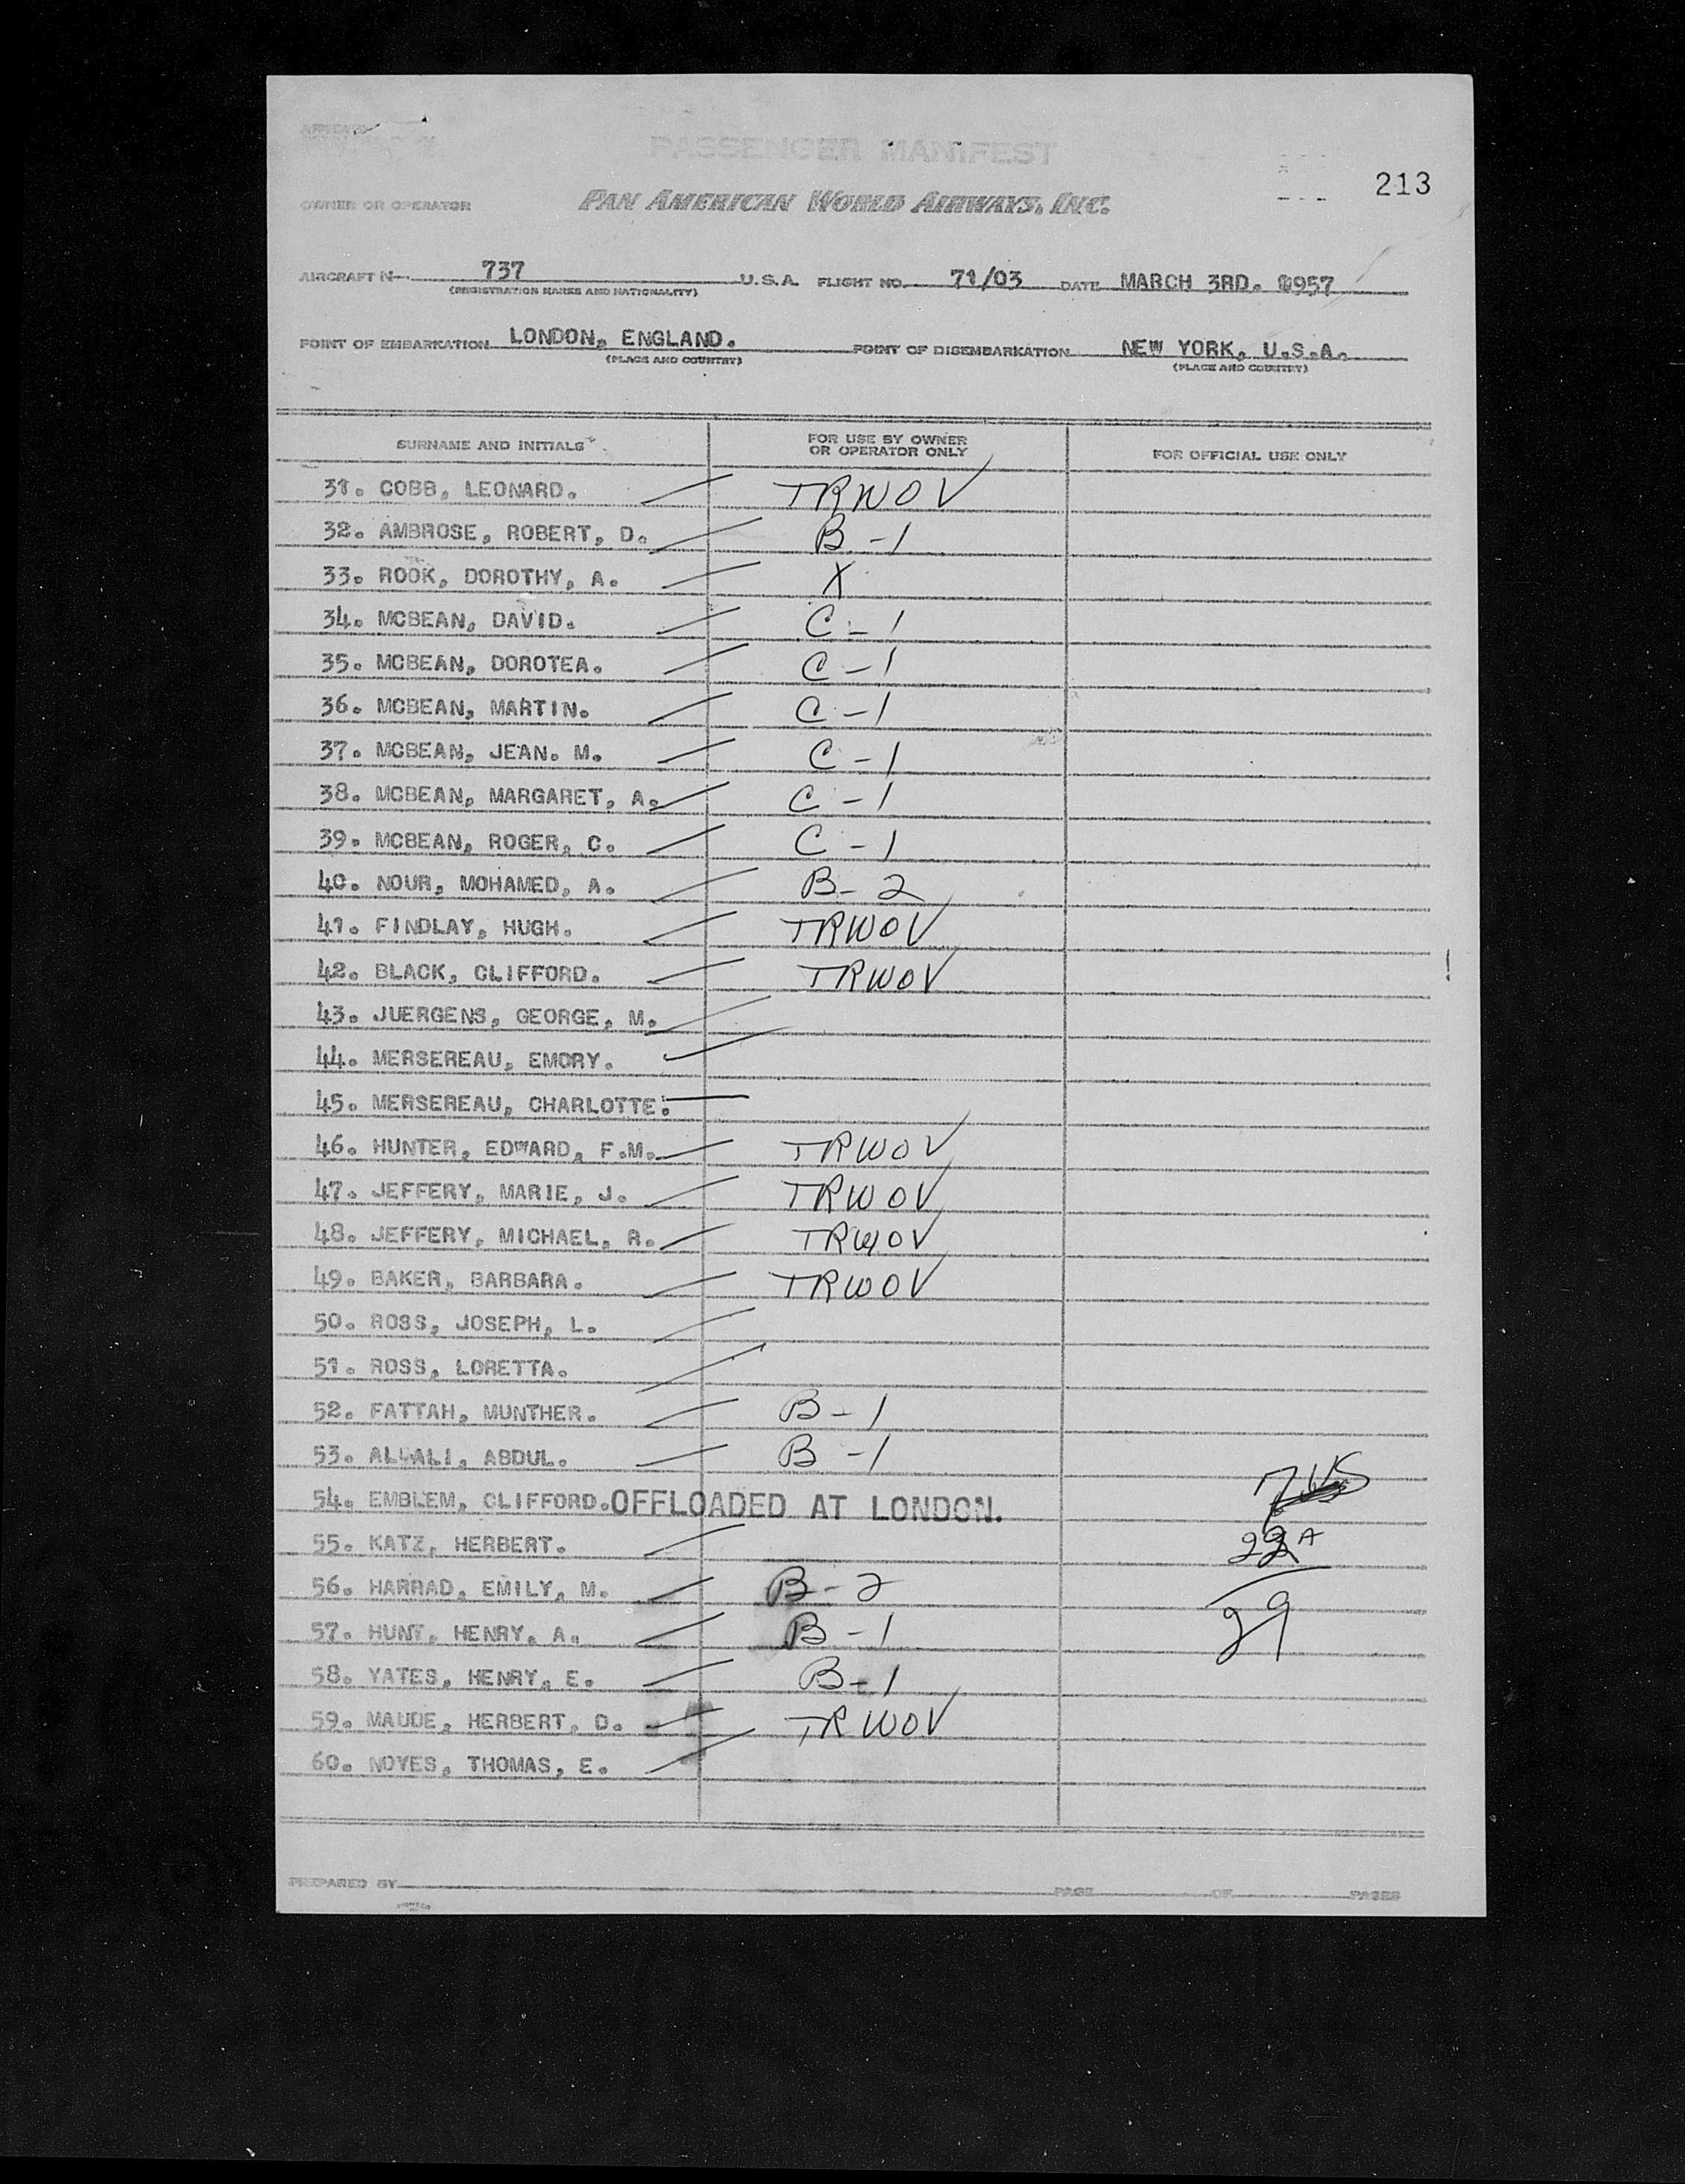 PASSENGER MANIFEST
213
OWNER OR OPERATOR PAN AMERICAN WORLD AIRWAYS, INC.
AIRCRAFT N— 737 U.S.A. FLIGHT NO. 71/03 DATE MARCH 3RD. 1957
(REGISTRATION MARKS AND NATIONALITY)
POINT OF EMBARKATION LONDON, ENGLAND. POINT OF DISEMBARKATION NEW YORK, U.S.A.
(PLACE AND COUNTRY) (PLACE AND COUNTRY)
SURNAME AND INITIALS FOR USE BY OWNER OR OPERATOR ONLY FOR OFFICIAL USE ONLY
31. COBB, LEONARD. TRWOV
32. AMBROSE, ROBERT, D. B-1
33. ROOK, DOROTHY, A. X
34. MCBEAN, DAVID. C-1
35. MCBEAN, DOROTEA. C-1
36. MCBEAN, MARTIN. C-1
37. MCBEAN, JEAN. M. C-1
38. MCBEAN, MARGARET, A. C-1
39. MCBEAN, ROGER, C. C-1
40. NOUR, MOHAMED, A. B-2
41. FINDLAY, HUGH. TRWOV
42. BLACK, CLIFFORD. TRWOV
43. JUERGENS, GEORGE, M.
44. MERSEREAU, EMORY.
45. MERSEREAU, CHARLOTTE.
46. HUNTER, EDWARD, F.M. TRWOV
47. JEFFERY, MARIE, J. TRWOV
48. JEFFERY, MICHAEL, R. TRWOV
49. BAKER, BARBARA. TRWOV
50. ROSS, JOSEPH, L.
51. ROSS, LORETTA.
52. FATTAH, MUNTHER. B-1
53. ABDUL. B-1
54. EMBLEM, CLIFFORD. OFFLOADED AT LONDON. 7 US
55. KATZ, HERBERT. A
56. HARRAD, EMILY, M. B-2
57. HUNT, HENRY, A. B-1 29
58. YATES, HENRY, E. B-1
59. MAUDE, HERBERT, D. TRWOV
60. NOYES, THOMAS, E.
PREPARED BY PAGE OF PAGES